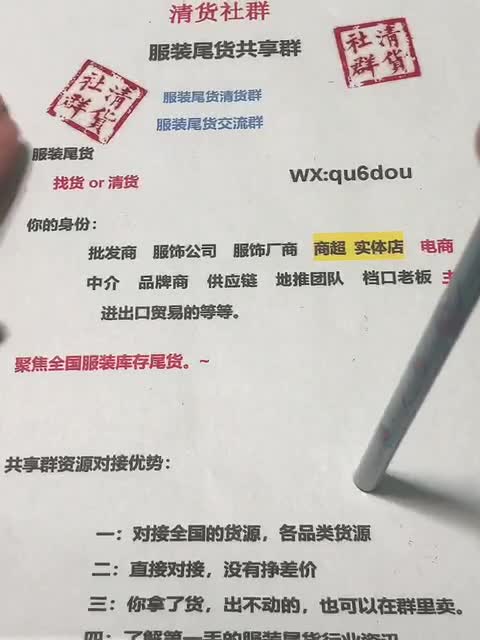 清货社群
服装尾货共享群
清貨社群
清貨社群
服装尾货清货群
服装尾货交流群
服装尾货
找货 or 清货
WX:qu6dou
你的身份：
批发商 服饰公司 服饰厂商 商超 实体店 电商
中介 品牌商 供应链 地推团队 档口老板
进出口贸易的等等。
聚焦全国服装库存尾货。~
共享群资源对接优势：
一：对接全国的货源，各品类货源
二：直接对接，没有挣差价
三：你拿了货，出不动的，也可以在群里卖。
四：了解第一手的服装尾货行业资讯